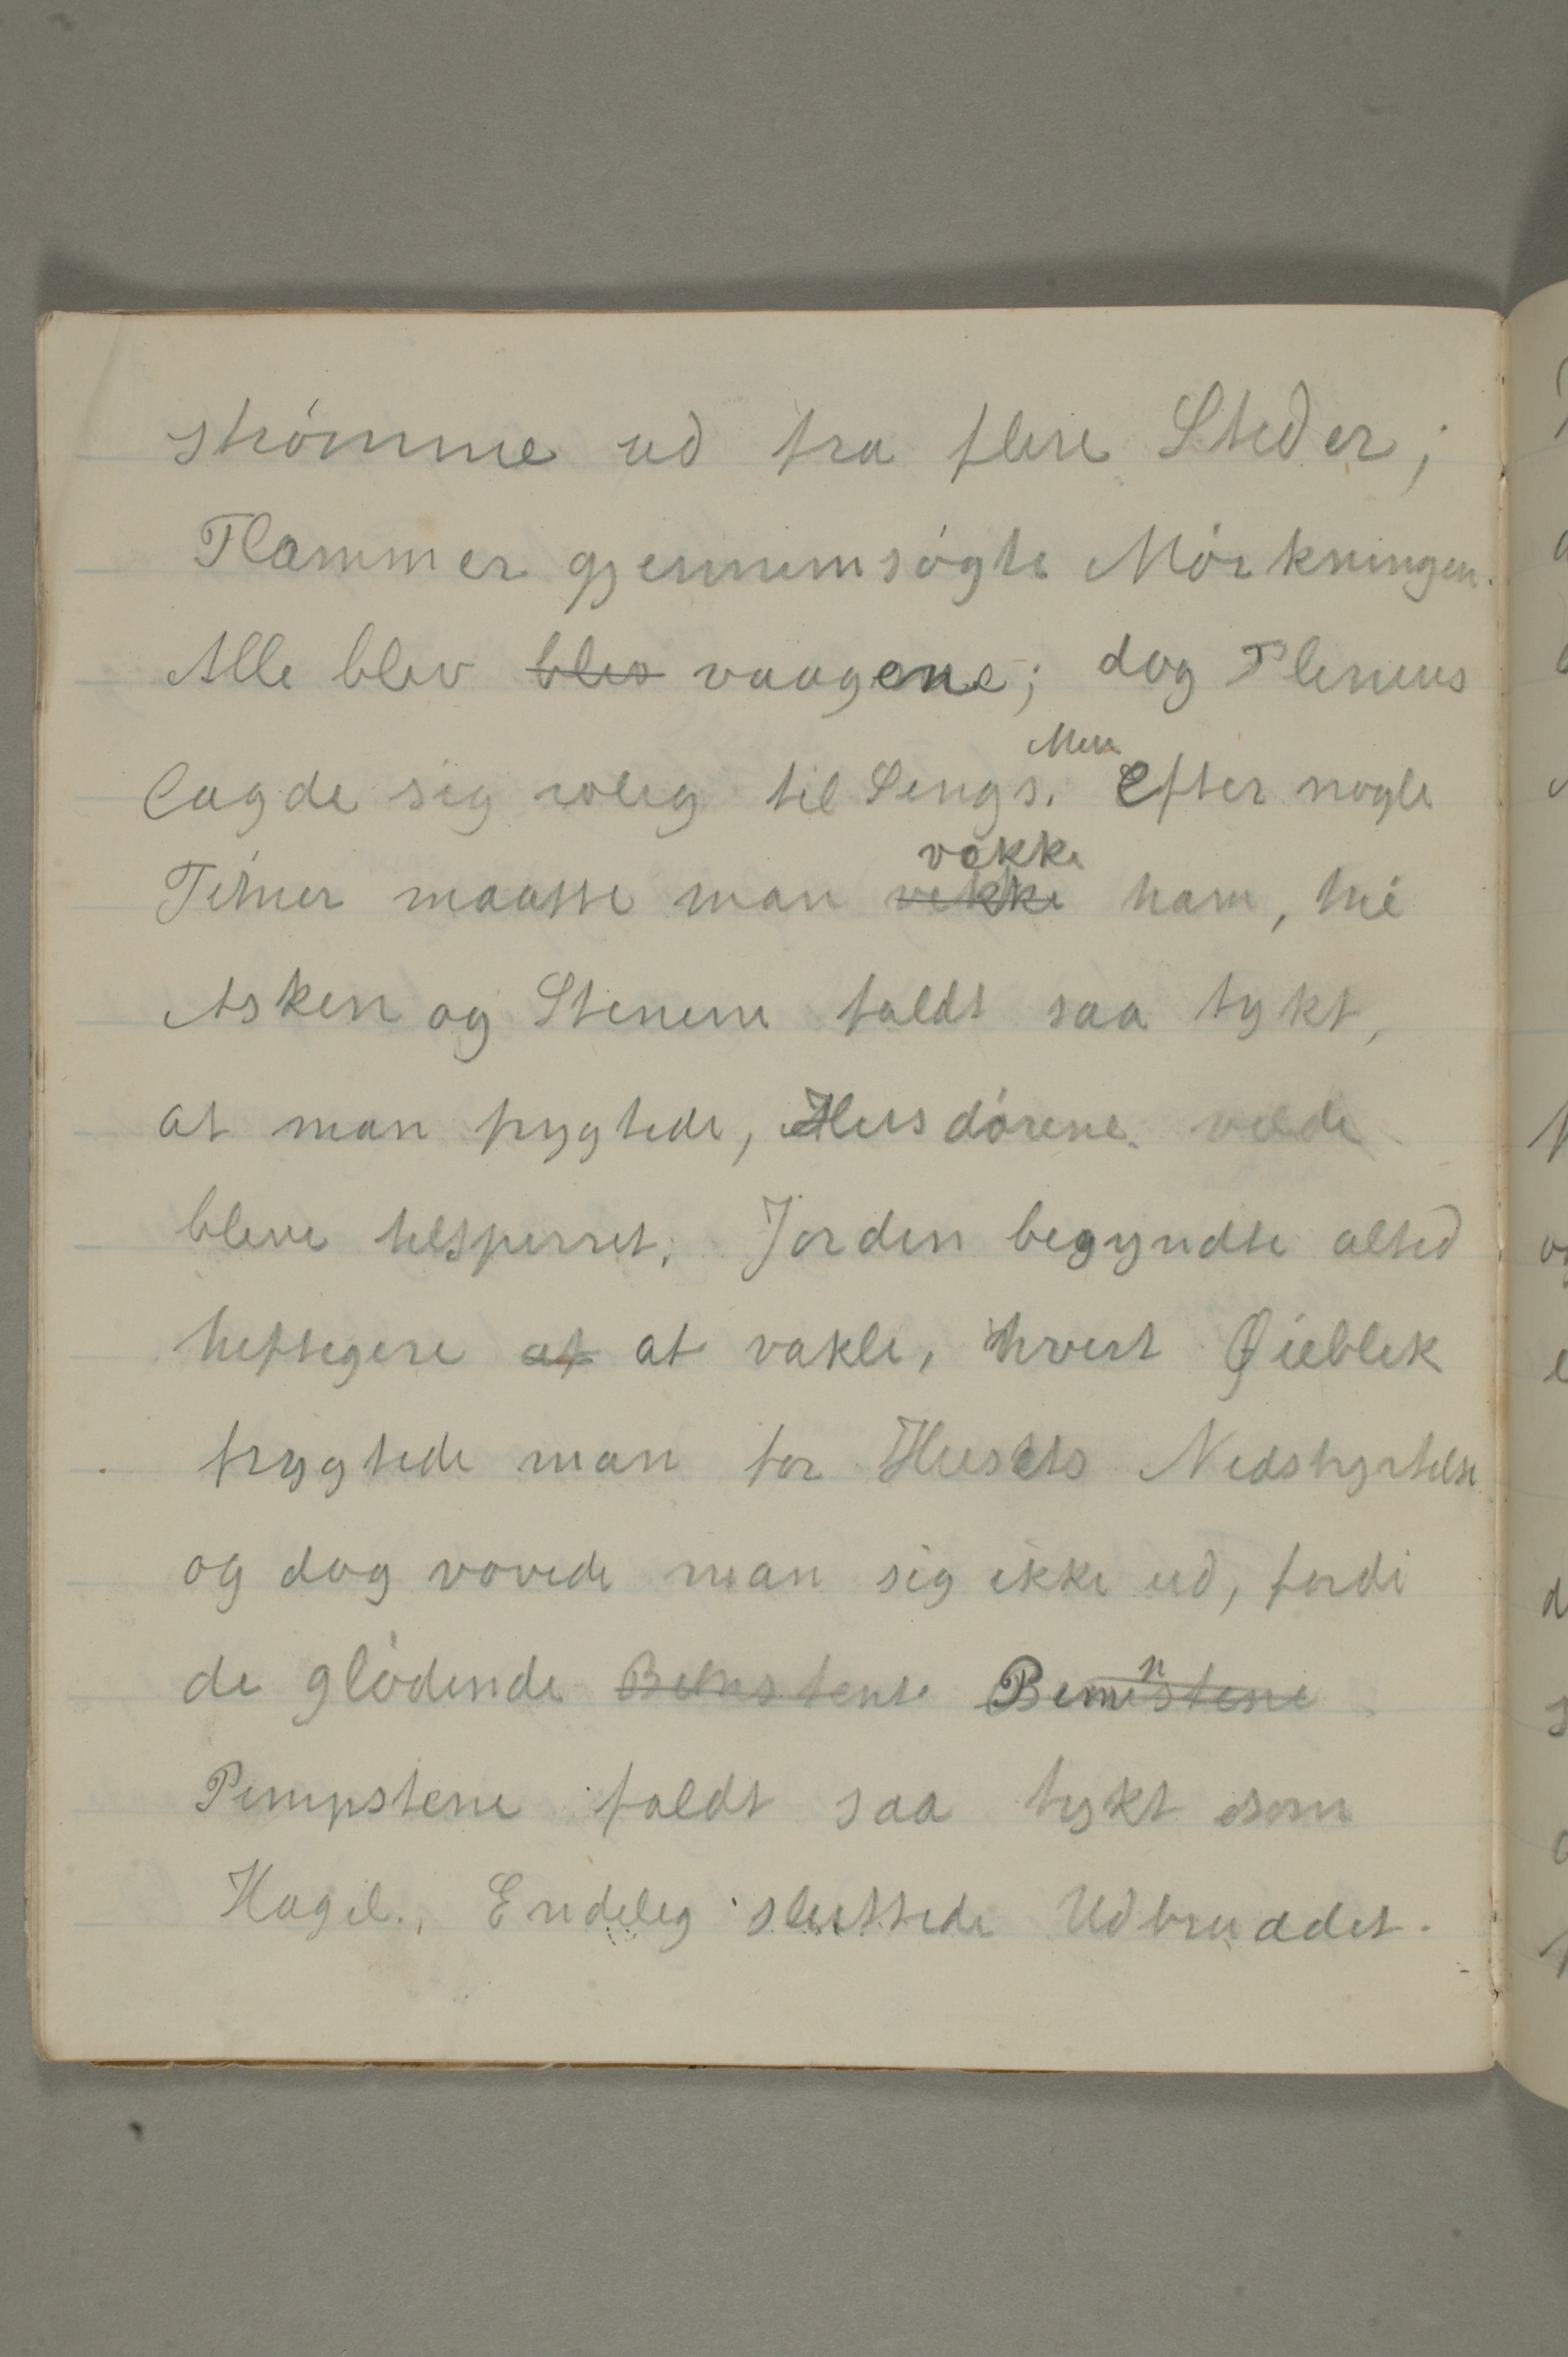 strömme ud fra flere Steder;
Flammer gjennemsøgte Mörkningen.
Alle blev bles vaagene; dog Plinius
lagde sig rolig til Sengs. Men Efter nogle
Timer maatte man vekke vække ham, thi
Asken og Stenene faldt saa tykt,
at man frygtede, Husdörene vilde
blive tilsperret. Jorden begyndte altid
heftigere af at vakle, hvert Øieblik
frygtede man for Husets Nedstyrtelse
og dog vovede man sig ikke ud, fordi
de glödende Bimstene Beminstene
Pimpstene faldt saa tykt som
Hagil. Endelig sluttede Udbruddet.